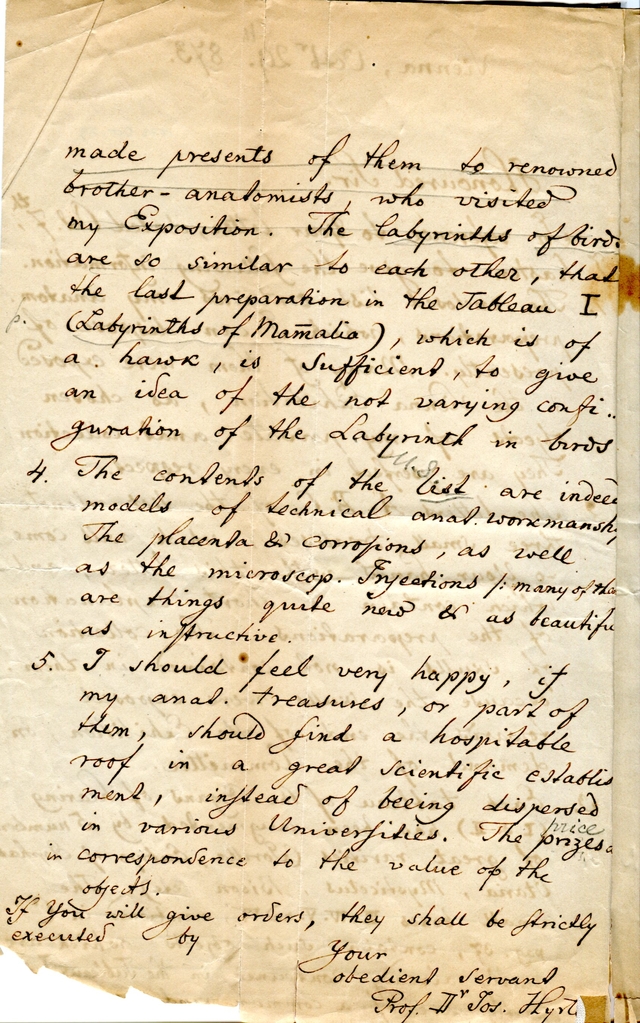 made presents of them to renowned
brother-anatomists, who visited
my Exposition. The labyrinths of birds
are so similar to each other, that
the last preparation in the Tableau I
(Labyrinths of Mam̄alia), which is of
a hawk, is sufficient, to give
an idea of the not varying confi-
guration of the Labyrinth in birds
4. The contents of the list are indeed
models of technical anat. workmansh
The placenta & corrosions, as well
as the microscop. Injections /: many of the
are things quite new & as beautifu
as instructive.
5. I should feel very happy, if
my anat. treasures, or part of
them, should find a hospitable
roof in a great scientific establis
ment, instead of beeing dispersed
price
in various Universities. The prizes a
in correspondence to the value of the
objects.
If You will give orders, they shall be strictly
executed by
Your
obedient servant
Prof. Dr Jos. Hyrtl